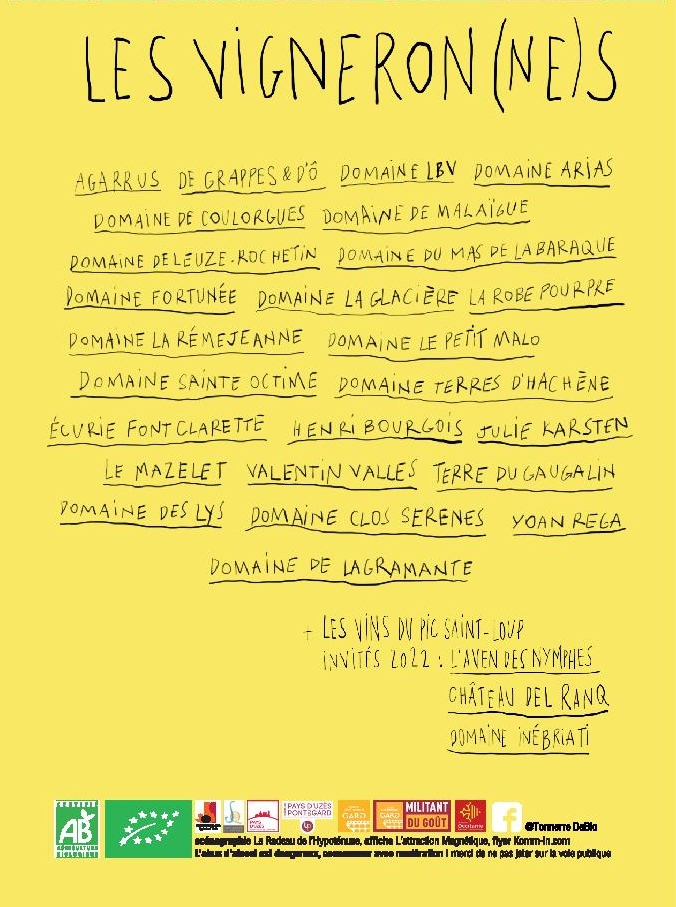 LES VIGNERON(NE)S
AGARRUS DE GRAPPES & D'Ô DOMAINE LBV DOMAINE ARIAS
DOMAINE DE COULORGUES DOMAINE DE MALAÏGUE
DOMAINE DELEUZE-ROCHETIN DOMAINE DU MAS DE LA BARAQUE
DOMAINE FORTUNÉE DOMAINE LA GLACIÈRE LA ROBE POURPRE
DOMAINE LA RÉMEJEANNE DOMAINE LE PETIT MALO
DOMAINE SAINTE OCTIME DOMAINE TERRES D'HACHÈNE
ÉCURIE FONT CLARETTE HENRI BOURGOIS JULIE KARSTEN
LE MAZELET VALENTIN VALLES TERRE DU GAUGALIN
DOMAINE DES LYS DOMAINE CLOS SERENES YOAN REGA
DOMAINE DE LAGRAMANTE
+ LES VINS DU PIC SAINT-LOUP
INVITÉS 2022 : L'AVEN DES NYMPHES
CHÂTEAU DEL RANQ
DOMAINE INÉBRIATI
AB
AGRICULTURE
BIOLOGIQUE
PAYS D'UZÈS
PONT GARD
GARD
GARD
MILITANT
DU GOÛT
Occitanie
f @Tonnerre DeBio
scénographie Le Radeau de l'Hypoténuse, affiche L'attraction Magnétique, flyer Komm-in.com
L'abus d'alcool est dangereux, consommer avec modération I merci de ne pas jeter sur la voie publique